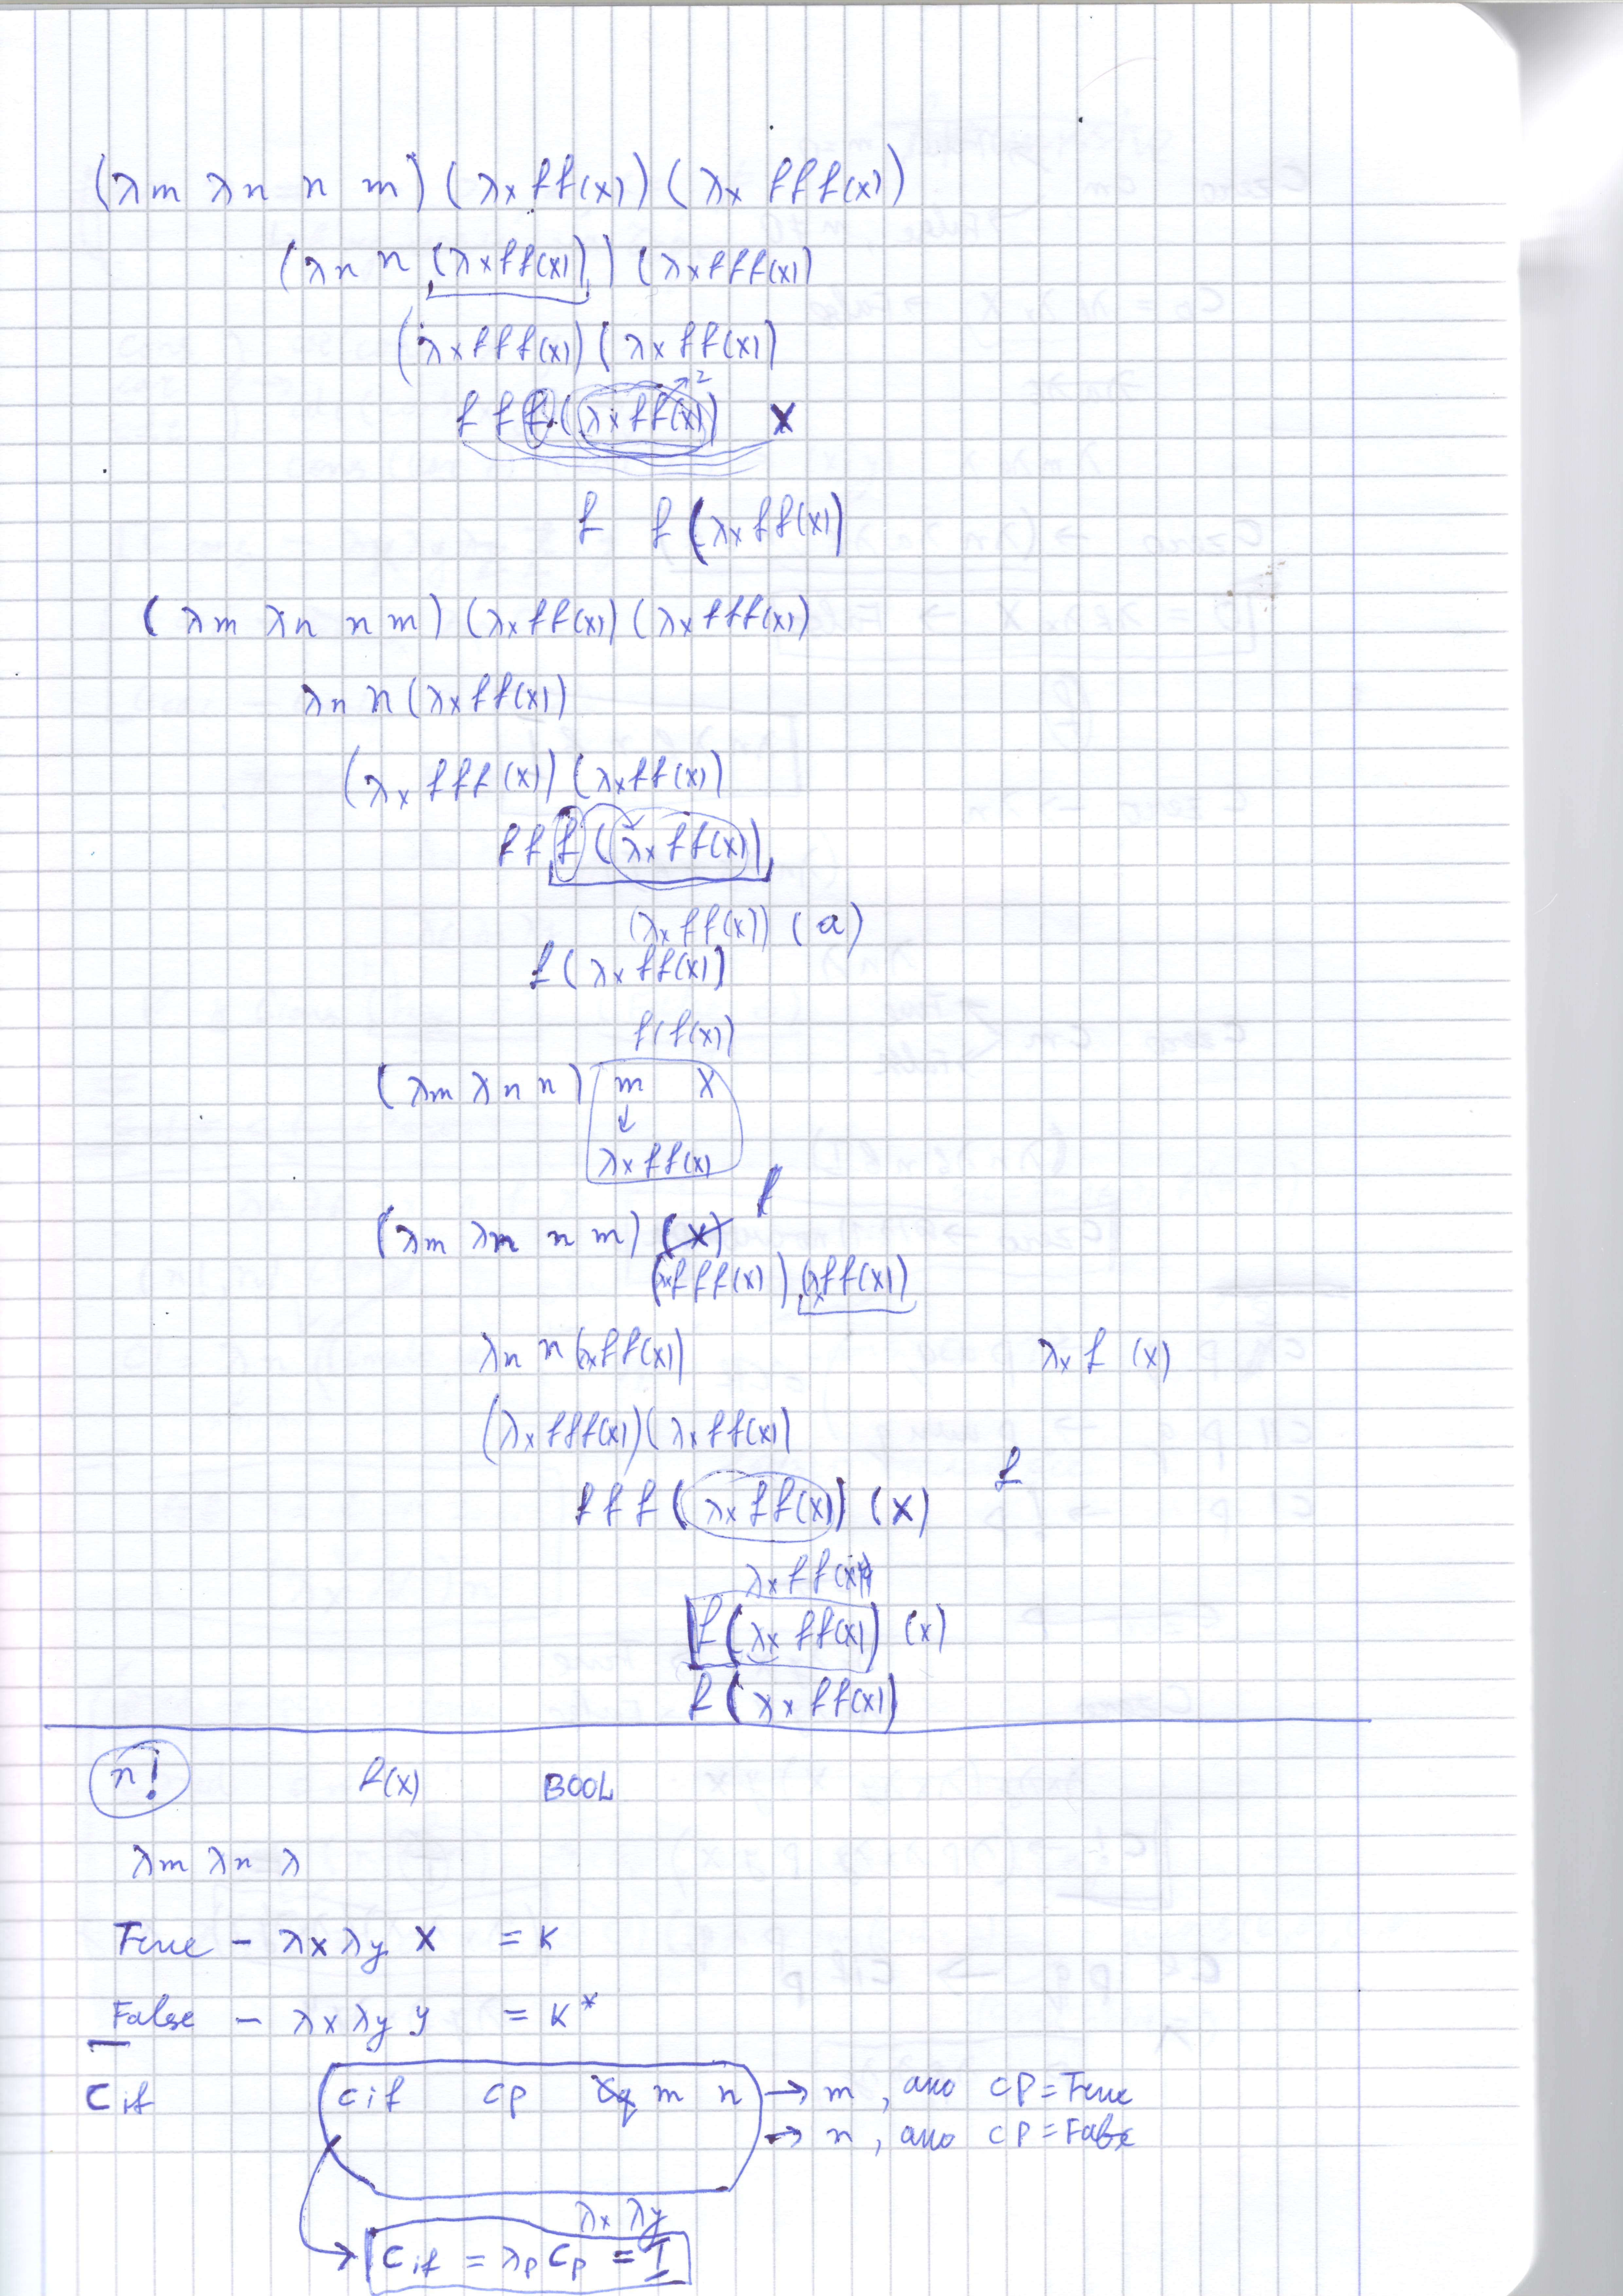 (λm λn n m) (λx ff(x)) (λx fff(x))
(λn n (λx ff(x))) (λx fff(x)
(λx fff(x)) (λx ff(x)
f f f (λx ff(x)) 2 X
f f (λx ff(x)
(λm λn n m) (λx ff(x) (λx fff(x)
λn n (λx ff(x)
(λx fff(x)) (λx ff(x)
f f f (λx ff(x))
(λx ff(x)) (a)
f (λx ff(x)
f(f(x)
(λm λn n) m X
↓
λx ff(x)
f
(λm λn n m)
(λx fff(x)) (λx ff(x))
λn n (λx ff(x) λx f (x)
(λx fff(x)) (λx ff(x)
f
f f f (λx ff(x)) (x)
λx ff(x)
f (λx ff(x)) (x)
f (λx ff(x)
n! f(x) BOOL
λm λn λ
True - λx λy X = K
False - λx λy y = K*
C if
cif cp m n → m , ако cp = True
→ n , ако cp = False
λx λy
→ Cif = λp Cp = I